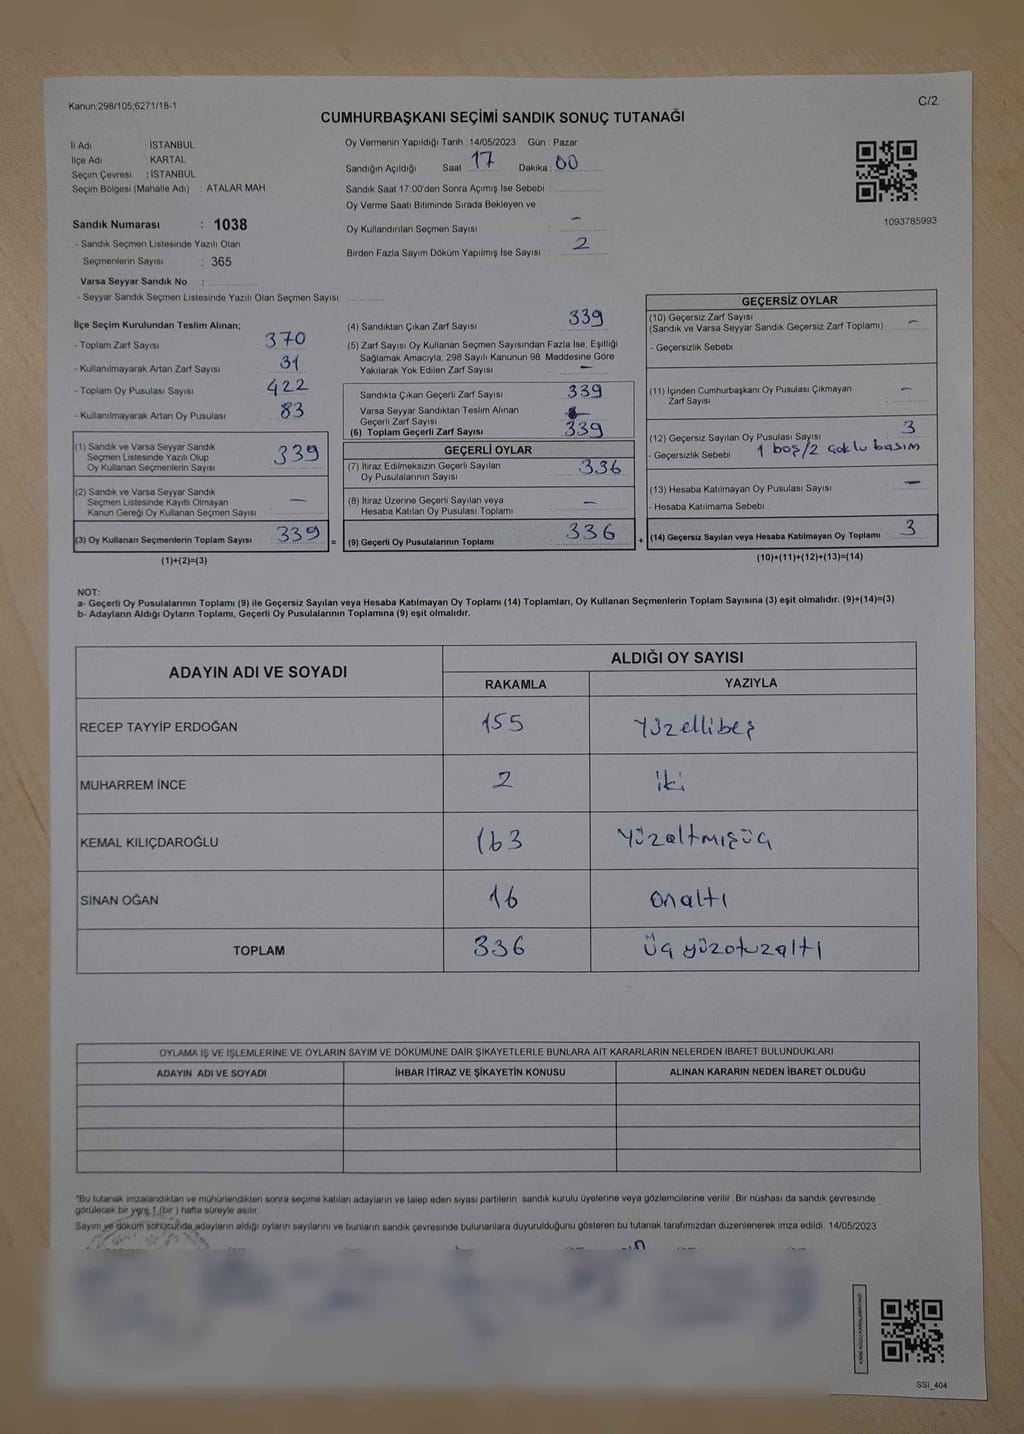 Kanun;298/105;6271/18-1
C/2
CUMHURBAŞKANI SEÇİMİ SANDIK SONUÇ TUTANAĞI
İl Adı : İSTANBUL
İlçe Adı : KARTAL
Seçim Çevresi : İSTANBUL
Seçim Bölgesi (Mahalle Adı) : ATALAR MAH.
Oy Vermenin Yapıldığı Tarih :14/05/2023 Gün : Pazar
Sandığın Açıldığı Saat 17 Dakika : 00
Sandık Saat 17:00'den Sonra Açımış İse Sebebi :
Oy Verme Saati Bitiminde Sırada Bekleyen ve
Oy Kullandırılan Seçmen Sayısı : -
Birden Fazla Sayım Döküm Yapılmış İse Sayısı : 2
1093785993
Sandık Numarası : 1038
- Sandık Seçmen Listesinde Yazılı Olan
Seçmenlerin Sayısı : 365
Varsa Seyyar Sandık No :
- Seyyar Sandık Seçmen Listesinde Yazılı Olan Seçmen Sayısı:
İlçe Seçim Kurulundan Teslim Alınan;
- Toplam Zarf Sayısı 370
- Kullanılmayarak Artan Zarf Sayısı 31
- Toplam Oy Pusulası Sayısı 422
- Kullanılmayarak Artan Oy Pusulası 83
(1) Sandık ve Varsa Seyyar Sandık
Seçmen Listesinde Yazılı Olup
Oy Kullanan Seçmenlerin Sayısı 339
(2) Sandık ve Varsa Seyyar Sandık
Seçmen Listesinde Kayıtlı Olmayan
Kanun Gereği Oy Kullanan Seçmen Sayısı -
(3) Oy Kullanan Seçmenlerin Toplam Sayısı 339 =
(1)+(2)=(3)
(4) Sandıktan Çıkan Zarf Sayısı 339
(5) Zarf Sayısı Oy Kullanan Seçmen Sayısından Fazla İse, Eşitliği
Sağlamak Amacıyla; 298 Sayılı Kanunun 98. Maddesine Göre
Yakılarak Yok Edilen Zarf Sayısı -
Sandıkta Çıkan Geçerli Zarf Sayısı 339
Varsa Seyyar Sandıktan Teslim Alınan
Geçerli Zarf Sayısı
(6) Toplam Geçerli Zarf Sayısı 339
GEÇERLİ OYLAR
(7) İtiraz Edilmeksizin Geçerli Sayılan
Oy Pusulalarının Sayısı 336
(8) İtiraz Üzerine Geçerli Sayılan veya
Hesaba Katılan Oy Pusulası Toplamı -
(9) Geçerli Oy Pusulalarının Toplamı 336 +
GEÇERSİZ OYLAR
(10) Geçersiz Zarf Sayısı
(Sandık ve Varsa Seyyar Sandık Geçersiz Zarf Toplamı) -
- Geçersizlik Sebebi :
(11) İçinden Cumhurbaşkanı Oy Pusulası Çıkmayan
Zarf Sayısı -
(12) Geçersiz Sayılan Oy Pusulası Sayısı 3
- Geçersizlik Sebebi : 1 boş/2 çoklu basım
(13) Hesaba Katılmayan Oy Pusulası Sayısı -
- Hesaba Katılmama Sebebi
(14) Geçersiz Sayılan veya Hesaba Katılmayan Oy Toplamı 3
(10)+(11)+(12)+(13)=(14)
NOT:
a- Geçerli Oy Pusulalarının Toplamı (9) ile Geçersiz Sayılan veya Hesaba Katılmayan Oy Toplamı (14) Toplamları, Oy Kullanan Seçmenlerin Toplam Sayısına (3) eşit olmalıdır. (9)+(14)=(3)
b- Adayların Aldığı Oyların Toplamı, Geçerli Oy Pusulalarının Toplamına (9) eşit olmalıdır.
ADAYIN ADI VE SOYADI
ALDIĞI OY SAYISI
RAKAMLA YAZIYLA
RECEP TAYYİP ERDOĞAN 155 Yüzellibeş
MUHARREM İNCE 2 iki
KEMAL KILIÇDAROĞLU 163 Yüzaltmışüç
SİNAN OĞAN 16 onaltı
TOPLAM 336 Üçyüzotuzaltı
OYLAMA İŞ VE İŞLEMLERİNE VE OYLARIN SAYIM VE DÖKÜMÜNE DAİR ŞİKAYETLERLE BUNLARA AİT KARARLARIN NELERDEN İBARET BULUNDUKLARI
ADAYIN ADI VE SOYADI İHBAR İTİRAZ VE ŞİKAYETİN KONUSU ALINAN KARARIN NEDEN İBARET OLDUĞU
*Bu tutanak imzalandıktan ve mühürlendikten sonra seçime katılan adayların ve talep eden siyasi partilerin sandık kurulu üyelerine veya gözlemcilerine verilir .Bir nüshası da sandık çevresinde
görülecek bir yere 1 (bir ) hafta süreyle asılır.
Sayım ve döküm sonucunda adayların aldığı oyların sayılarını ve bunların sandık çevresinde bulunanlara duyurulduğunu gösteren bu tutanak tarafımızdan düzenlenerek imza edildi. 14/05/2023
KARE KODU KARALAMAYINIZ!
SSI_404